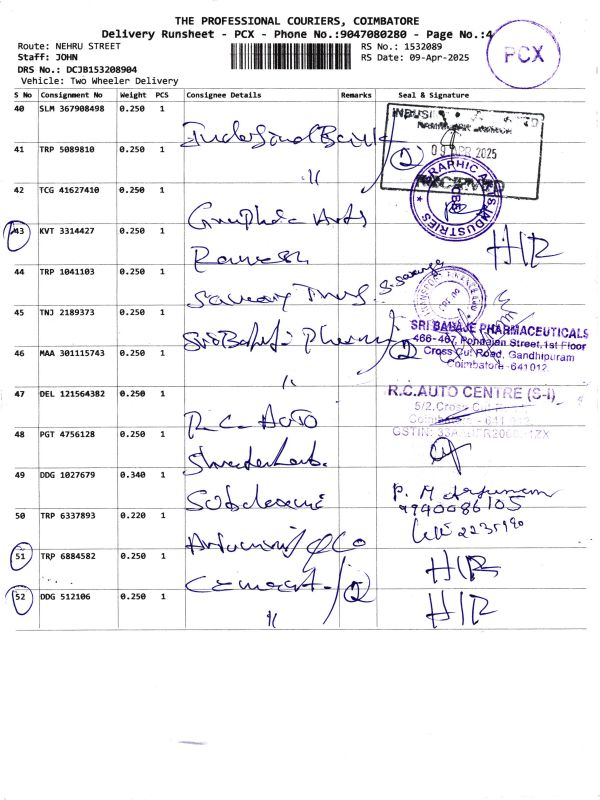 THE PROFESSIONAL COURIERS, COIMBATORE
Delivery Runsheet - PCX - Phone No.:9047080280 - Page No.:4
Route: NEHRU STREET
RS No.: 1532089
PCX
Staff: JOHN
RS Date: 09-Apr-2025
DRS No.: DCJB153208904
Vehicle: Two Wheeler Delivery
S No Consignment No Weight PCS Consignee Details Remarks Seal & Signature
40 SLM 367908498 0.250 1
IndusInd Bank
09 APR 2025
41 TRP 5089810 0.250 1
〃 2
RECEIVED
42 TCG 41627410 0.250 1
Graphic Arts
GRAPHIC ARTS INDUSTRIES
CBE
43 KVT 3314427 0.250 1
Ramesh
H/R
44 TRP 1041103 0.250 1
45 TNJ 2189373 0.250 1
Sri Babaje Pharma
SRI BABAJE PHARMACEUTICALS
466-467, Ponnaian Street, 1st Floor
Cross Cut Road, Gandhipuram
Coimbatore - 641012
46 MAA 301115743 0.250 1
〃 2
47 DEL 121564382 0.250 1
R.C. AUTO
R.C.AUTO CENTRE (S-I)
5/2, Cross
Coimbatore - 641
GSTIN:
48 PGT 4756128 0.250 1
49 DDG 1027679 0.340 1
9940086105
50 TRP 6337893 0.220 1
51 TRP 6884582 0.250 1
H/R
52 DDG 512106 0.250 1
〃 2
H/R